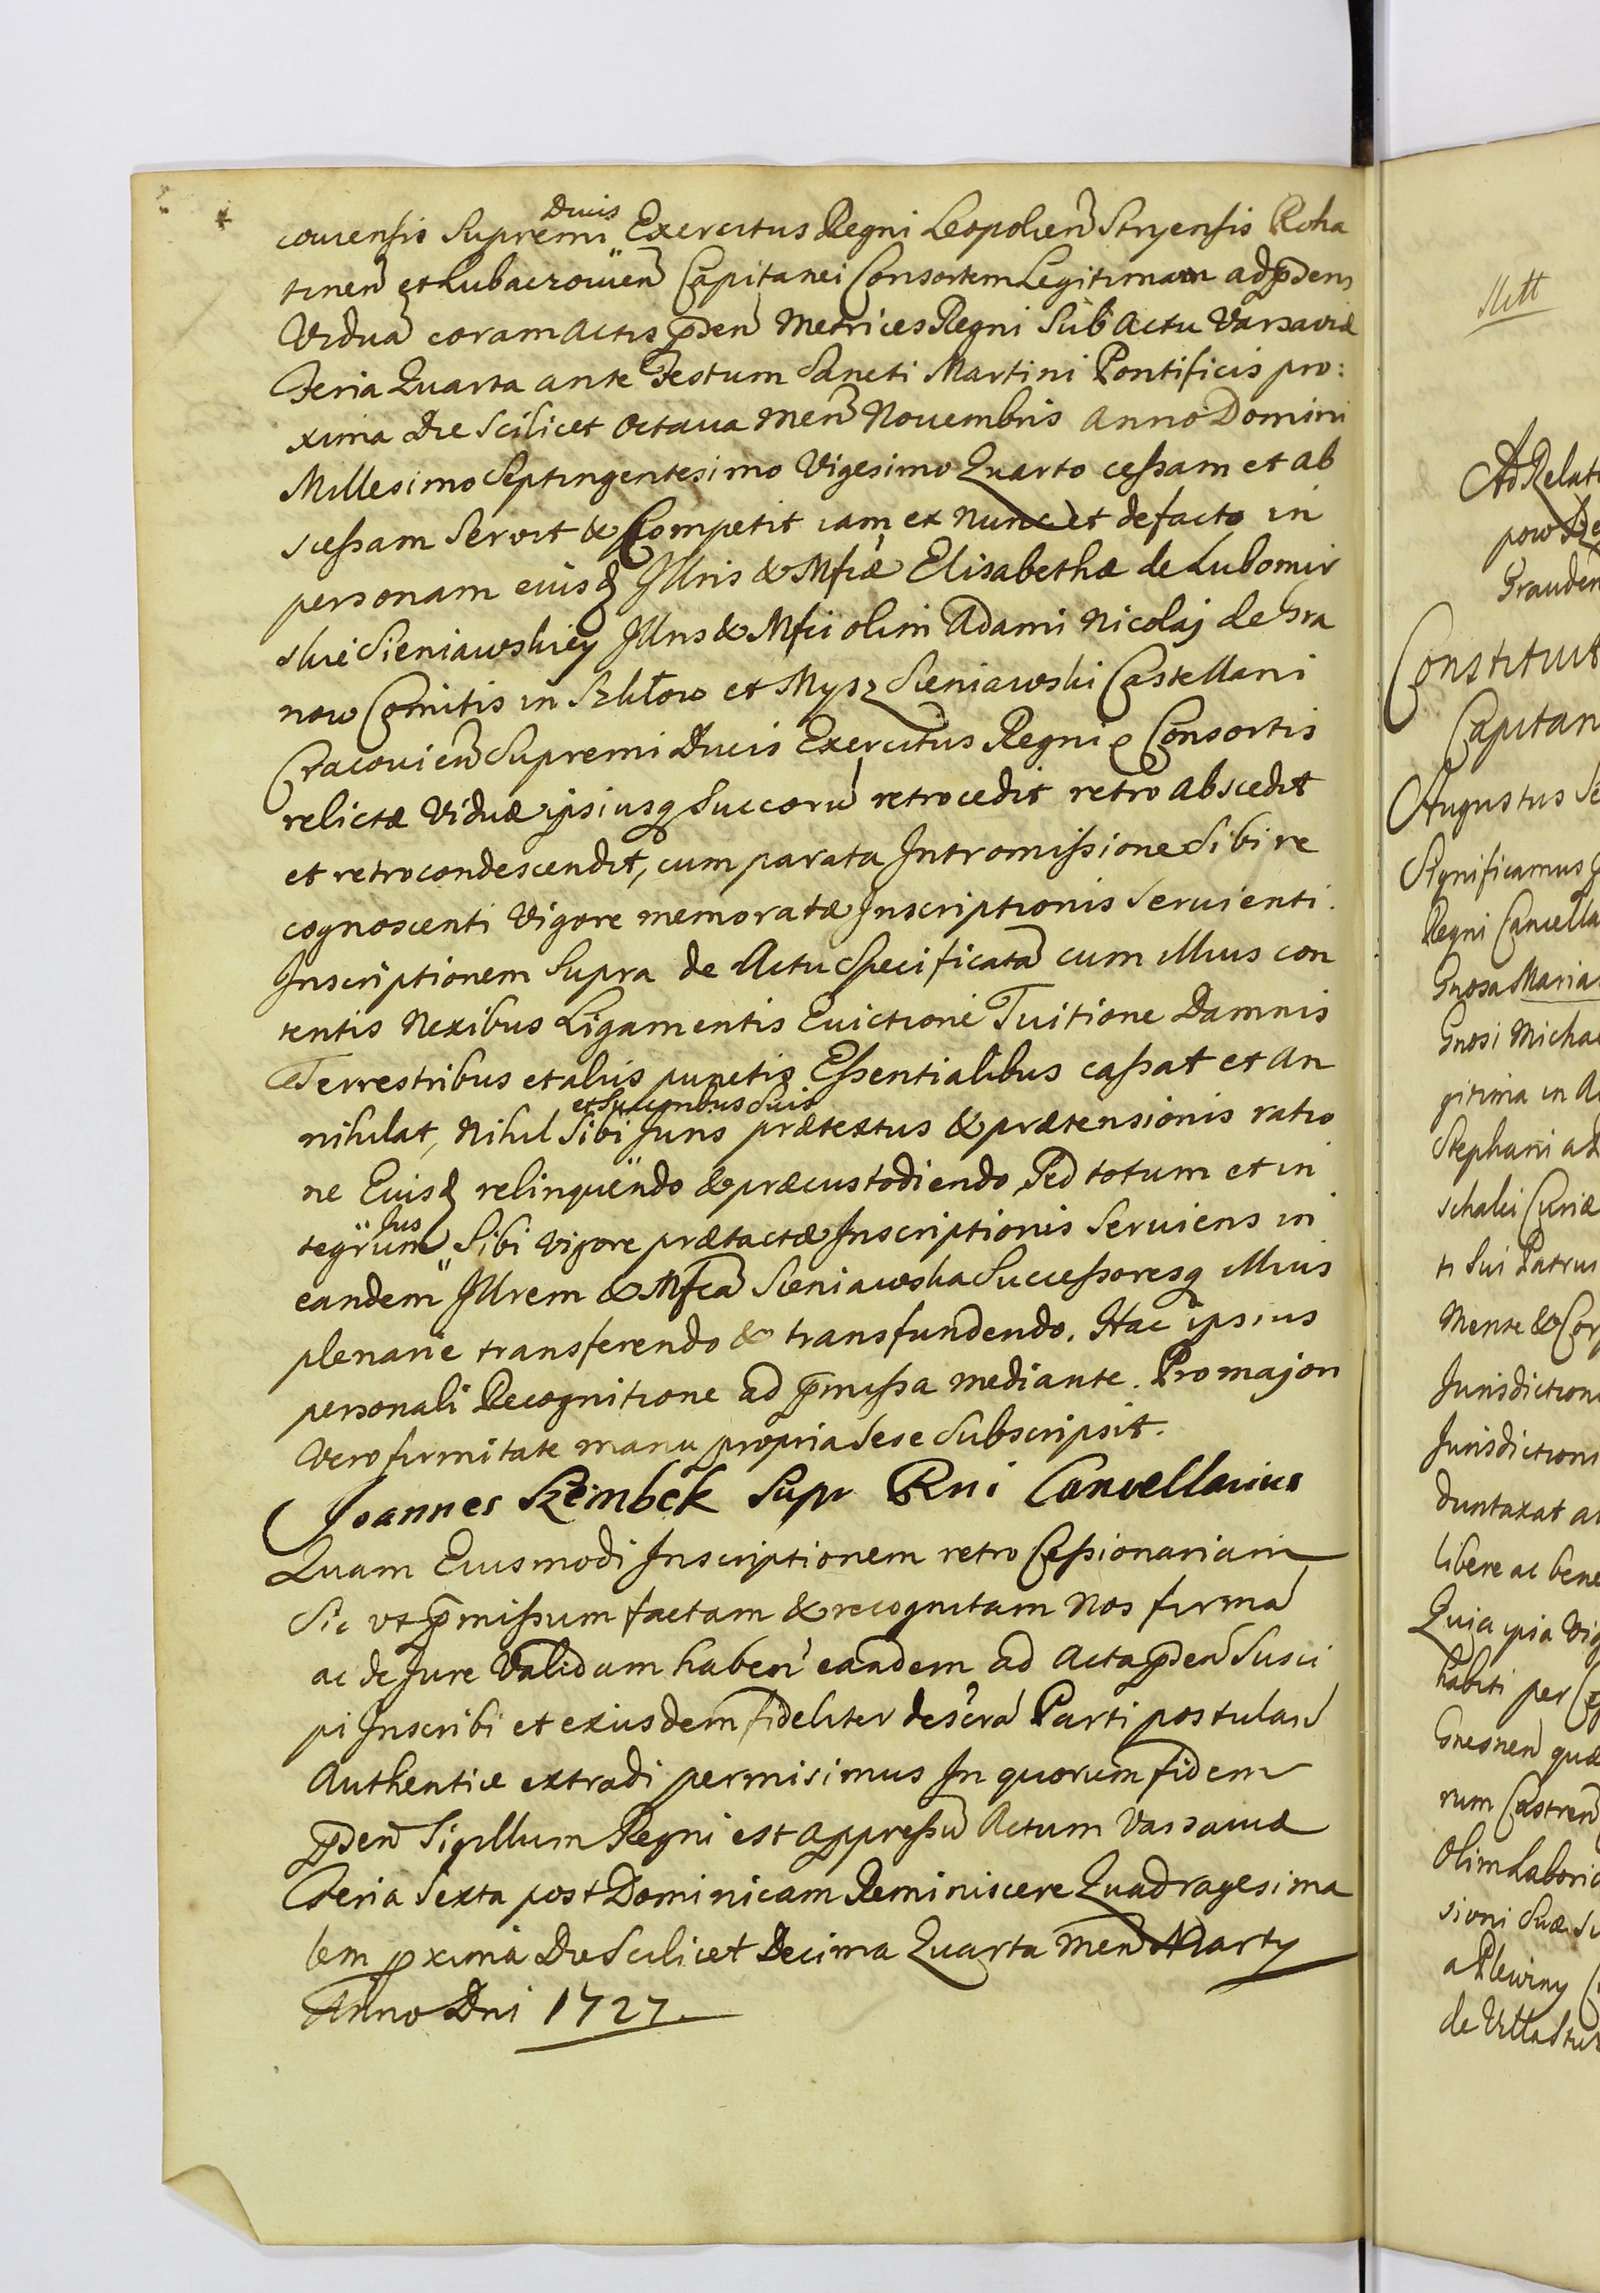 Ducis
couiensis Supremi Exercitus Regni Leopolien Stryensis Roha
tinen et Lubaczouien Capitanei Consortem Legitimam ad pden
Vidua coram Actis pden Metrices Regni Sub Actu Varsaviæ
Feria Quarta ante Festum Sancti Martini Pontificis pro:
xima Die Scilicet Octaua Men Nouembris Anno Domini
Millesimo Septingentesimo Vigesimo Quarto cessam et ab
scessam Servit & Competit iam ex nunc et defacto in
personam eiusq Illris & Mfcæ Elisabethæ de Lubomir
skie Sieniawskiey Illris & Mfci olim Adami Nicolaj de Gra
now Comitis in Szkłow et Mysz Sieniawski Castellani
Cracouien Supremi Ducis Exercitus Regni Consortis
relictæ Viduæ ipsiusq Succorū retrocedit retro abscedit
et retrocondescendit, cum parata Intromissione Sibi re
cognoscenti Vigore memoratæ Inscriptionis Seruienti.
Inscriptionem Supra de Actu Specificatā cum illius con
tentis Nexibus Ligamentis Euictione Tuitione Damnis
Terrestribus et aliis punctis Essentialibus cassat et an
et Succoribus Suis
nihilat, Nihil Sibi Juris prætextus & prætensionis ratio
ne Eiusq relinquendo & præcustodiendo Sed totum et in
Jus
tegrum Sibi vigore prætactæ Inscriptionis Seruiens in
eandem Illrem & Mfcā Sieniawska Successoresq illius
plenarie transferendo & transfundendo. Hac ipsius
personali Recognitione ad pmissa mediante. Pro majori
Vero firmitate manu propria Sese Subscripsit.
Joannes Szembek Supr Rni Cancellarius
Quam Eiusmodi Inscriptionem retro Cessionariam
Sic vt pmissum factam & recognitam Nos firmā
ac de Jure Validam haben eandem ad Acta pden Susci
pi Inscribi et exiusdem fideliter descra Parti postulan
Authentice extradi permisimus In quorum fidem
pden Sigillum Regni est appressū Actum Varsauiæ
Feria Sexta post Dominicam Reminiscere Quadragesima
lem pxima Die Scilicet Decima Quarta Men Marty
Anno Dni 1727.
Ad Relati
Constituit
Capitan
Augustus
Significamus
Regni Cancella
Gnosa Maria
Gnosi Micha
gitima in A
Stephani
schalci Curiæ
ti Sui Patrui
Mente & Cor
Jurisdiction
Jurisdiction
duntaxat a
libere ac bene
Quia ipsa Vig
habiti per
Gnesnen quæ
rum Castren
Olim
sioni Suæ